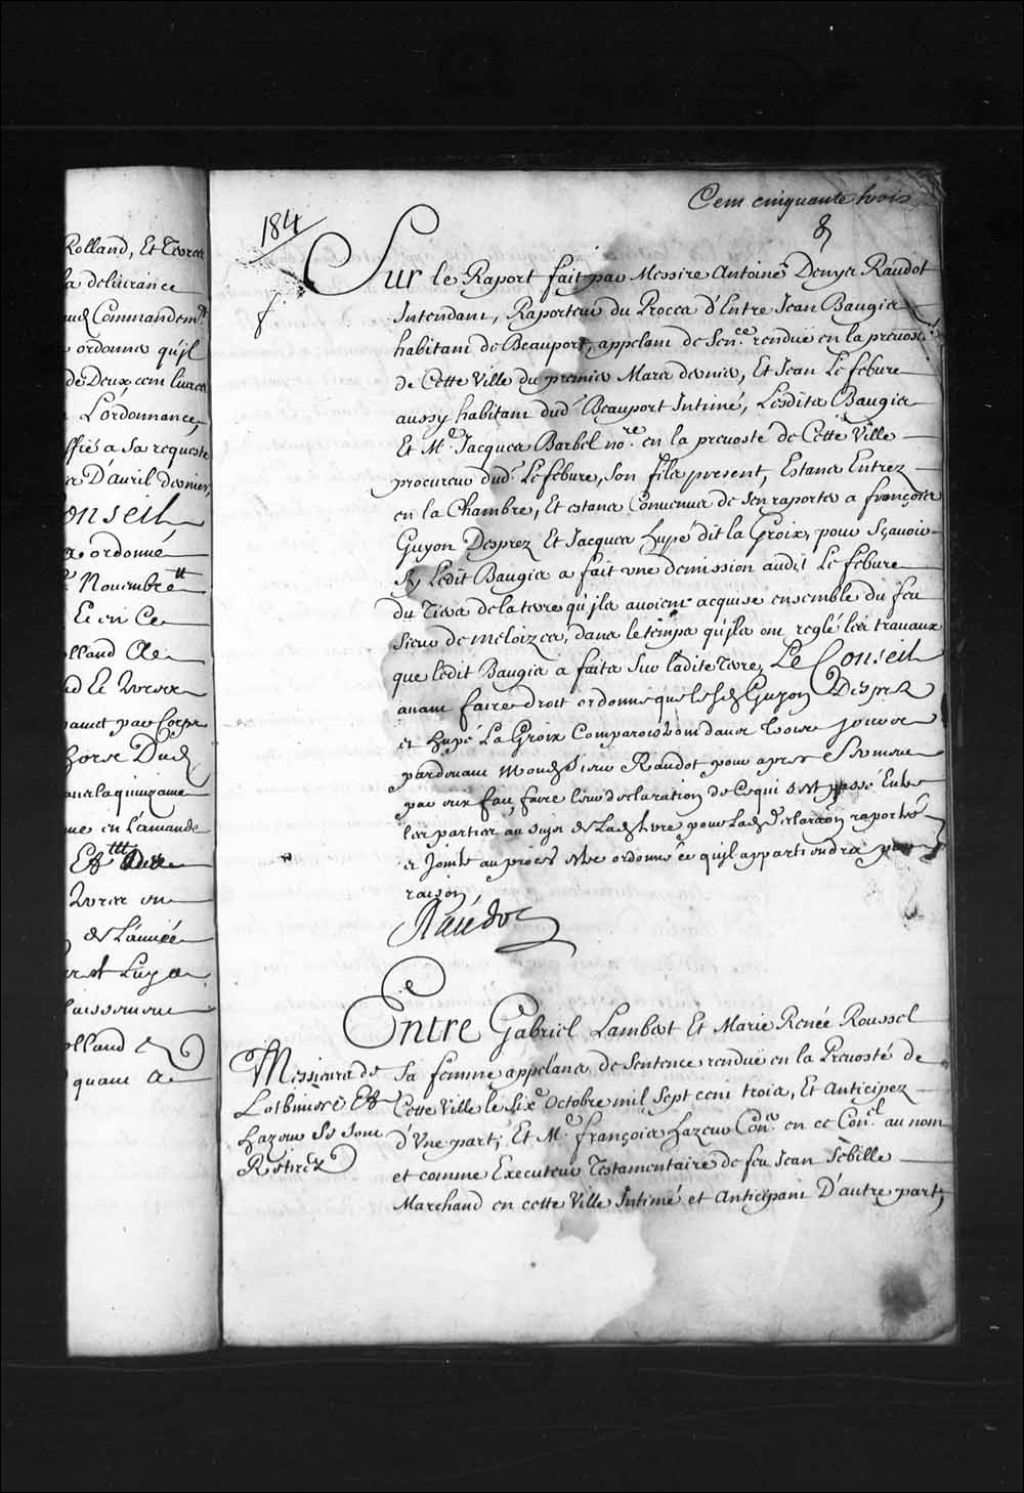 Rolland, Et
la deliurance
aud Commandemt
ordonna qu'jl
de Deux cens liures
L'ordonnance,
a Sa requeste
D'auril dernier,
onseil
a ordonné
Nouembre
Et en Ce
olland &
pacquet par Corps
hors Dud
en L'amande
de L'année
olland &
quant a
Cent cinquante trois
184
Sur le Raport fait par Messire Antoine Denys Raudot
Intendant, Raporteur du Procez d'Entre Jean Baugis
habitant de Beauport, appelant de Sence. rendue en la preuosté
de Cette Ville du premier Mars dernier, Et Jean Le febure
aussy habitant dud Beauport Intimé, Lesdits Baugis
Et Me. Jacques Barbel nore. en la preuosté de Cette Ville
procureur dud. Lefebure, Son fils present, Estans Entrez
en la Chambre, Et estans Conuenus de s'en raporter a françois
Guyon Desprez Et Jacques hupé dit la Groix, pour Sçauoir
Sy Ledit Baugis a fait vne demission audit Le febure
du Tiers de la terre qu'jls auoient acquise ensemble du feu
Sieur de meloizes, dans le temps qu'jls ont reglé les trauaux
que ledit Baugis a faits Sur ladite terre, Le Conseil
auant faire droit ordonne que lesd Guyon Desprez
et hupé La Groix Comparoistront dans Trois jours
pardeuant Mond Sieur Raudot pour apres Serment
par eux fait, faire leur declaration de Ce qui s'est passé Entre
les parties au sujet de Lad terre pour Lad declaraon raportée
et Jointe au procez estre ordonné ce qu'jl appartiendra par
raison
Raudot
Entre Gabriel Lambert Et Marie Renée Roussel
Sa femme appelans de Sentence rendue en la Preuosté de
Cette Ville le Sixe. Octobre mil Sept cent trois, Et Anticipez
d'Vne part; Et Me. françois hazeur Coner. en ce Conel. au nom
et comme Executeur Testamentaire de feu Jean Sébille
Marchand en cette Ville Intimé et Anticipant D'autre part;
Messieurs de
Lotbiniere Et
hazeur Se sont
Retirez